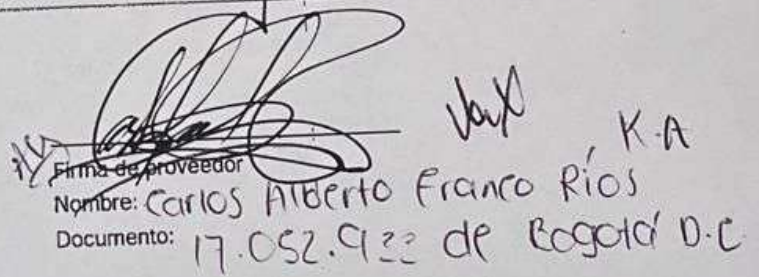 K.A
Firma de proveedor
Nombre: Carlos Alberto Franco Ríos
Documento: 17.052.922 de Bogotá D.C